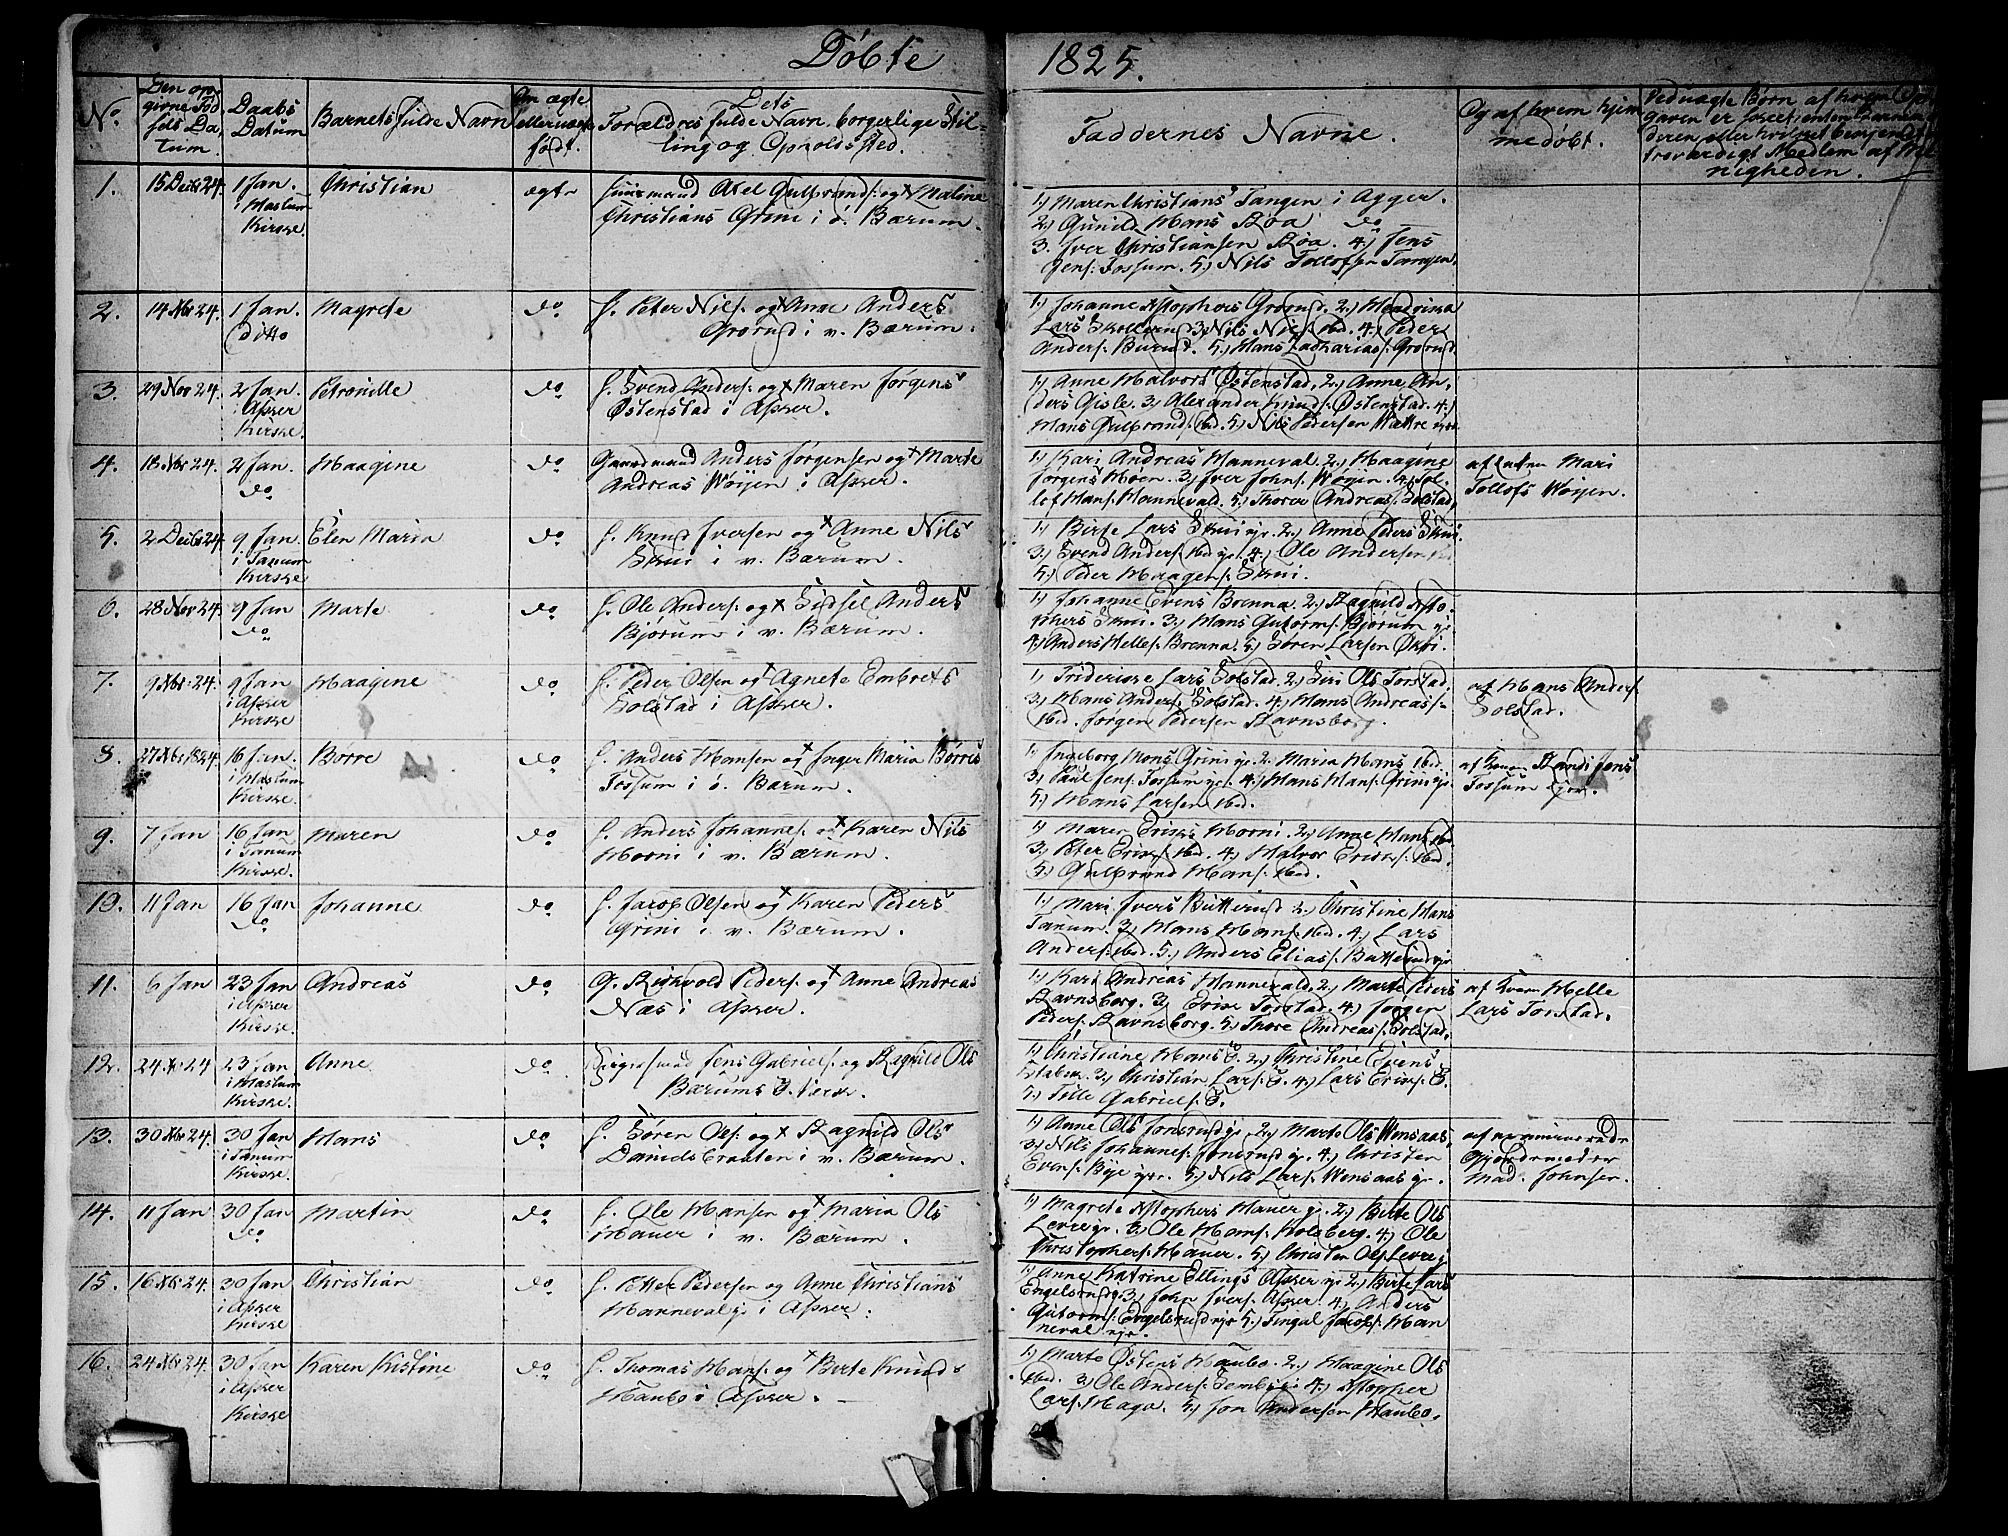 Döbte 1825.
No.
Den opgivne Fødsels Datum.
Daabs Datum
Barnets fulde Navn
Om ægte eller uægte født.
Dets Forældres fulde Navn, borgerlige Stilling og Opholdssted.
Faddernes Navne.
Og af hvem hjemmedøbt.
1. 15 Decbr 24. 1 Jan. i Haslum Kirke. Christian ægte
Huusmand Axel Gulbrands: og + Maline
Christians Grini i ö. Bærum.
1.) Maren Christians Tangen i Agger.
2.) Gunild Hans Røa do
3. Iver Christiansen Røa. 4.) Jens
Jens: Fossum. 5.) Nils Tollofsen Tangen.
2. 14 Xbr 24. 1 Jan. Ditto Magrete do
H. Peter Nils: og + Anne Anders
Grorud i v. Bærum.
1.) Johanne Xstophers Grorud. 2.) Hendrikka
Lars Skollerud 3.) Nils Niels: ibd. 4.) Peder
Anders: Burud. 5.) Hans Zacharias: Grorud.
3. 29 Nov 24. 2 Jan. i Asker Kirke. Petronille do
H. Svend Anders: og + Maren Jørgens
Östenstad i Asker.
1.) Anne Halvors Østenstad, 2.) Anne An-
ders Gisle. 3.) Alexander Knuds: Østenstad. 4.)
Hans Gulbrands: ibd. 5.) Nils Pedersen Wættre
4. 18 Xbr 24. 2 Jan. do Haagine do
Gaardmand Anders Jørgensen og + Marte
Andreas Wøyen i Asker.
1.) Kari Andreas Hanneval. 2.) Haagine
Jørgens Hoen. 3.) Iver Johns: Wøyen. 4.) Tol-
lef Hans: Hannevald. 5.) Thorer Andreas: Solstad.
af Enken Mari
Tollofs Wøyen.
5. 2 Decbr 24. 9 Jan. i Tanum Kirke Elen Maria do
H. Knud Iversen og + Anne Nils
Skui i v. Bærum.
1.) Birte Lars Skui gr. 2.) Anne Peders Skui.
3.) Svend Anders: ibd gr. 4.) Ole Andersen
5.) Peder Haagens: Skui.
6. 28 Nov 24. 9 Jan do Marte do
H. Ole Anders: og + Sidsel Anders
Bjørum i v. Bærum.
1.) Johanne Evens Brenna. 2.) Ragnild Xsto-
phers Skui. 3.) Hans Gutorms: Bjørum gr.
4.) Anders Helles: Brenna. 5.) Søren Larsen Økri.
7. 9 Xbr: 24. 9 Jan i Asker Kirke Haagine do
H. Peder Olsen og + Agnete Embrets
Solstad i Asker.
1.) Friderikke Lars Solstad. 2.) Siri Ols Torstad.
3.) Hans Anders: Solstad. 4.) Hans Andreas:
ibd. Jørgen Pedersen Ravnsborg.
af Hans Anders:
Solstad.
8. 27 Xbr 1824. 16 Jan. i Haslum Kirke. Børre do
H. Anders Hansen og + Inger Maria Børres
Fossum i ö. Bærum.
1.) Ingeborg Mons Grini gr. 2. Maria Hans ibd.
3.) Paul Jens: Fossum gr. 4.) Hans Hans: Grini gr.
5.) Hans Larsen ibd.
af Konen Randi Jens
Fossum
9. 7 Jan 16 Jan i Tanum Kirke. Maren do
H. Anders Johannes: og + Karen Nils
Horni i v. Bærum.
1.) Maren Eriks Horni. 2.) Anne Hans ibd.
3.) Peter Eriks: ibd. 4.) Halvor Eriks: ibd.
5.) Gulbrand Hans: ibd.
10. 11 Jan 16 Jan do Johanne do
H. Jacob Olsen og + Karen Peders
Grini i v. Bærum.
1.) Mari Ivers Butterud 2.) Christine Hans
Tanum. 3.) Hans Hans: ibd. 4.) Lars
Anders: ibd. 5.) Anders Elias: Butterud gr
11. 6 Jan 23 Jan i Asker Kirke. Andreas do
G. Reinvold Peders: og + Anne Andreas
Næs i Asker.
1.) Kari Andreas Hannevald. 2.) Marte Peders
Ravnsborg. 3.) Erik Torstad. 4.) Jørgen
Peders: Ravnsborg. 5.) Thore Andreas: Solstad.
af Konen Helle
Lars Torstad.
12. 24 Xbr 24 23 Jan i Haslum Kirke. Anne do
Jens Gabriels: og Ragnild Ols
Bærums Værk.
1.) Christiane Hans 2.) Christine Evens
Stabæk. 3.) Christian Lars: 4.) Lars Eriks:
5.) Tille Gabriels:
13. 30 Xbr 24. 30 Jan i Tanum Kirke. Hans do
H. Søren Ols: og + Ragnild Ols
Danielsbraaten i v. Bærum.
1.) Anne Ols Jonsrud gr. 2.) Marte Ols Wensaas,
3.) Nils Johannes: Jonsrud gr. 4.) Christen
Evens: Bye gr. 5.) Nils Lars: Wensaas gr.
af examinerede
Gjordemoder
Mad. Johnsen.
14. 11 Jan 30 Jan do Martin do
H. Ole Hansen og + Maria Ols
Hauer i v. Bærum.
1.) Magrete Xstophers Hauer gr. 2.) Birte Ols
Levre gr. 3.) Ole Hans: Holsberg. 4.) Ole
Christophers: Hauer. 5.) Christen Ols: Levre
15. 16 Xbr 24. 30 Jan i Asker Kirke Christian do
H. Petter Pedersen og Anne Christians
Hanneval i Asker.
1.) Anne Katrine Ellings Asker gr 2.) Birte Lars
Engelsrud 3.) John Ivers: Asker 4.) Anders
Gutorms: Engelsrud gr 5.) Fingal Jacobs: Han
neval gr.
16. 24 Xbr 24. 30 Jan i Asker Kirke Karen Kistine do
H. Thomas Hans: og + Birte Knuds
Haubo i Asker.
1.) Marte Østens Haubo. 2.) Haagine Ols
ibd. 3.) Ole Anders: Semb 4.) Xstopher
Lars: Haga. 5.) Jon Andersen Haubo.